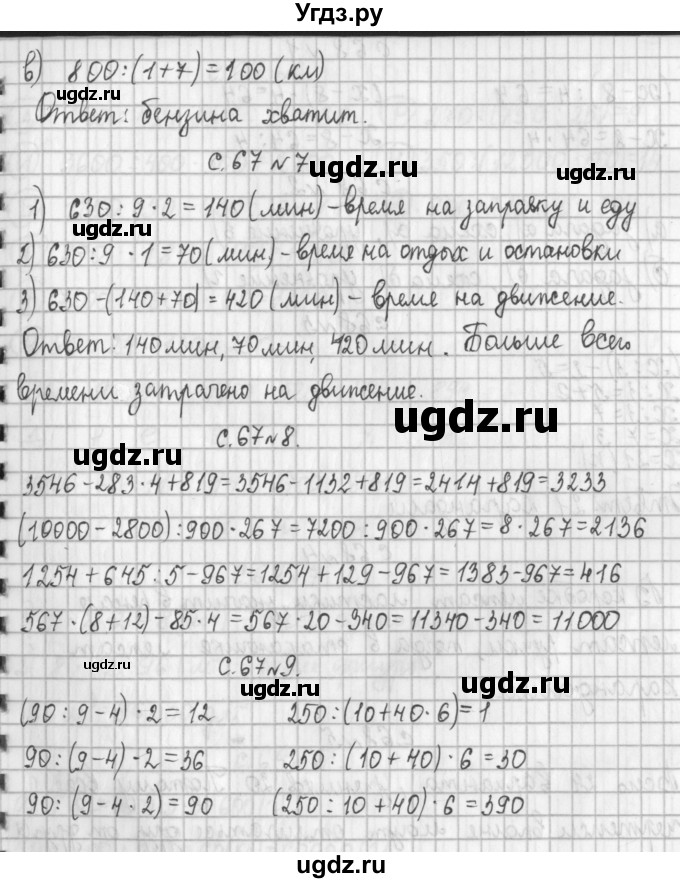 Угдз.ру
в) 800:(1+7)=100 (км)
ugdz.ru ugdz.ru
Ответ: бензина хватит.
с.67 №7
ugdz.ru
1) 630:9·2=140(мин)-время на заправку и еду
ugdz.ru
2) 630:9·1=70(мин)-время на отдых и остановки
3) 630-(140+70)=420(мин)-время на движение.
ugdz.ru ugdz.ru
Ответ: 140мин, 70мин, 420мин. Больше всего
времени затрачено на движение.
ugdz.ru
с.67№8.
ugdz.ru
3546-283·4+819=3546-1132+819=2414+819=3233
(10000-2800):900·267=7200:900·267=8·267=2136
ugdz.ru ugdz.ru
1254+645:5-967=1254+129-967=1383-967=416
567·(8+12)-85·4=567·20-340=11340-340=11000
ugdz.ru
с.67№9.
ugdz.ru
(90:9-4)·2=12 250:(10+40·6)=1
90:(9-4)·2=36 250:(10+40)·6=30
ugdz.ru ugdz.ru
90:(9-4·2)=90 (250:10+40)·6=390
ugdz.ru
ugdz.ru